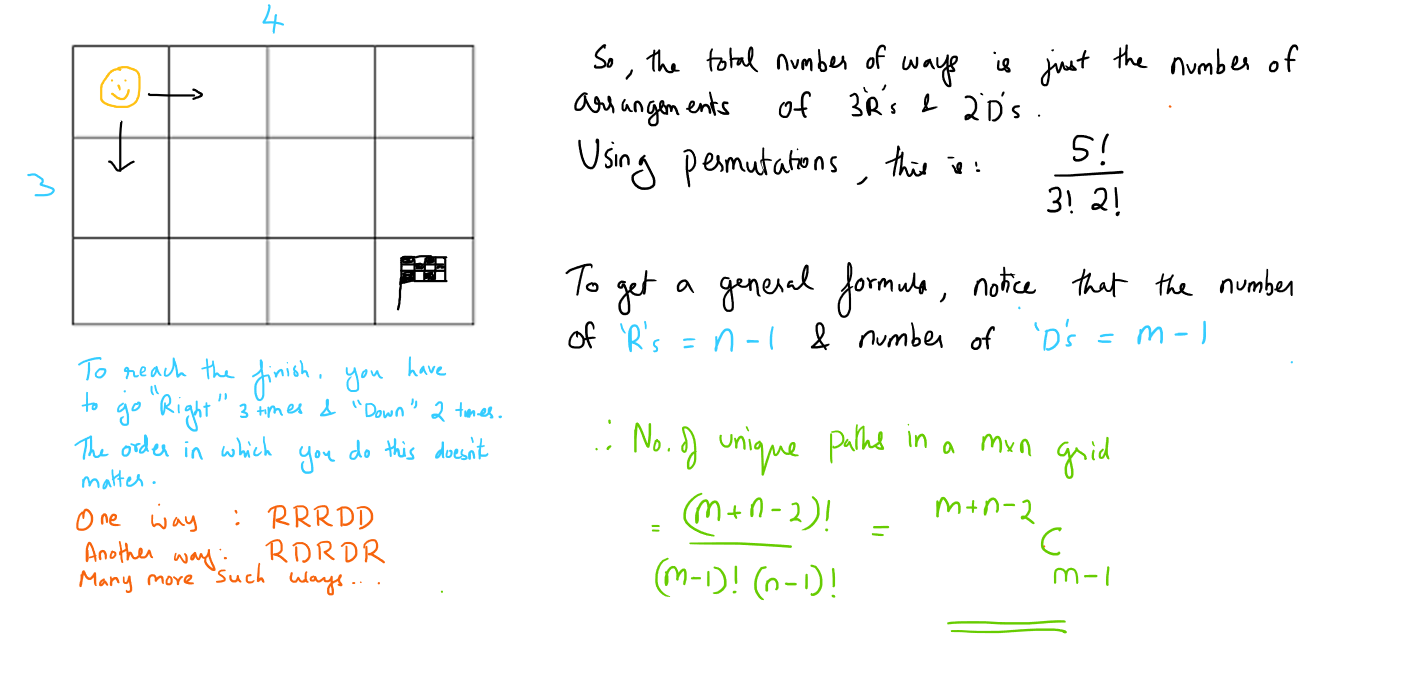 4
3
To reach the finish, you have
to go "Right" 3 times & "Down" 2 times.
The order in which you do this doesn't
matter.
One way : RRRDD
Another way: RDRDR
Many more such ways...
So, the total number of ways is just the number of
arrangements of 3 'R's & 2 'D's.
Using permutations, this is: 5!
3! 2!
To get a general formula, notice that the number
of 'R's = n-1 & number of 'D's = m-1
∴ No. of unique paths in a mxn grid
= (m+n-2)! = m+n-2
C
(m-1)! (n-1)! m-1